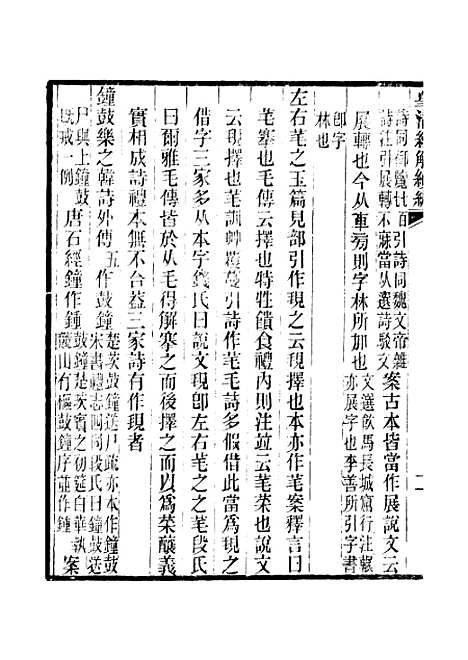 皇清經解續編
詩同御覽廿百引詩同魏文帝雜
詩注引展轉不寐當从選詩駁文
案古本皆當作展說文云
展轉也今从車㫄則字林所加也
文選飲馬長城窟行注輾
亦展字也李善所引字書
卽字
林也
左右芼之玉篇見部引作覒之云覒擇也本亦作芼案釋言曰
芼搴也毛傳云擇也特牲饋食禮內則注竝云芼菜也說文
云覒擇也芼訓艸覆蔓引詩作芼毛詩多假借此當爲覒之
借字三家多从本字錢氏曰說文覒卽左右芼之之芼段氏
曰爾雅毛傳皆於从毛得解搴之而後擇之而以爲菜釀義
實相成詩禮本無不合葢三家詩有作覒者
鐘鼓樂之韓詩外傳五作鼓鐘
楚茨鼓鐘送尸疏亦本作鐘鼓
宋書禮志四同段氏曰鐘鼓送
尸與上鐘鼓
旣戒一例
唐石經鐘作鍾
鼓鐘是茨賓之初筵白華執
競山有樞鼓鐘序竝作鍾
案